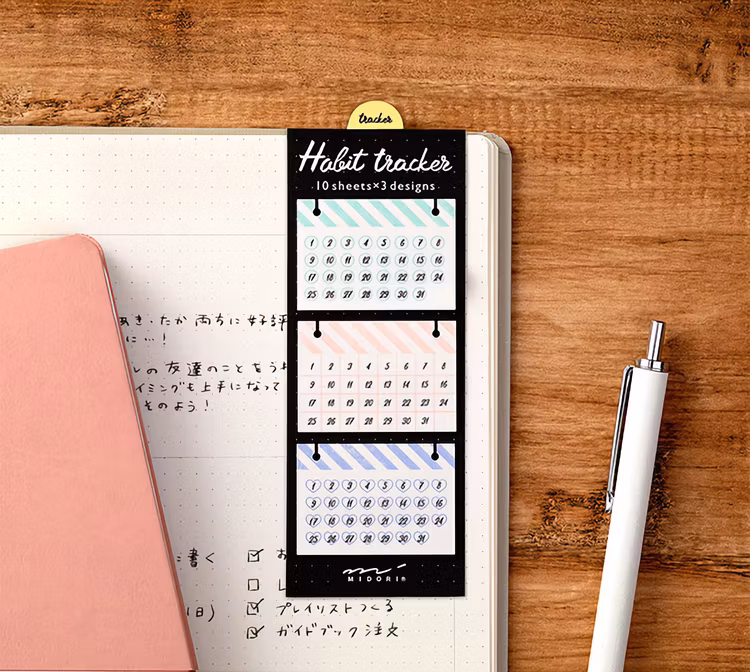 tracker
Habit tracker
10 sheets×3 designs
1 2 3 4 5 6 7 8
9 10 11 12 13 14 15 16
17 18 19 20 21 22 23 24
25 26 27 28 29 30 31
1 2 3 4 5 6 7 8
9 10 11 12 13 14 15 16
17 18 19 20 21 22 23 24
25 26 27 28 29 30 31
1 2 3 4 5 6 7 8
9 10 11 12 13 14 15 16
17 18 19 20 21 22 23 24
25 26 27 28 29 30 31
MIDORI®
き・たか 両方に 好評
に…!
の友達のことをう
イミングも上手になって
そのよう!
書く
プレイリストつくる
ガイドブック注文